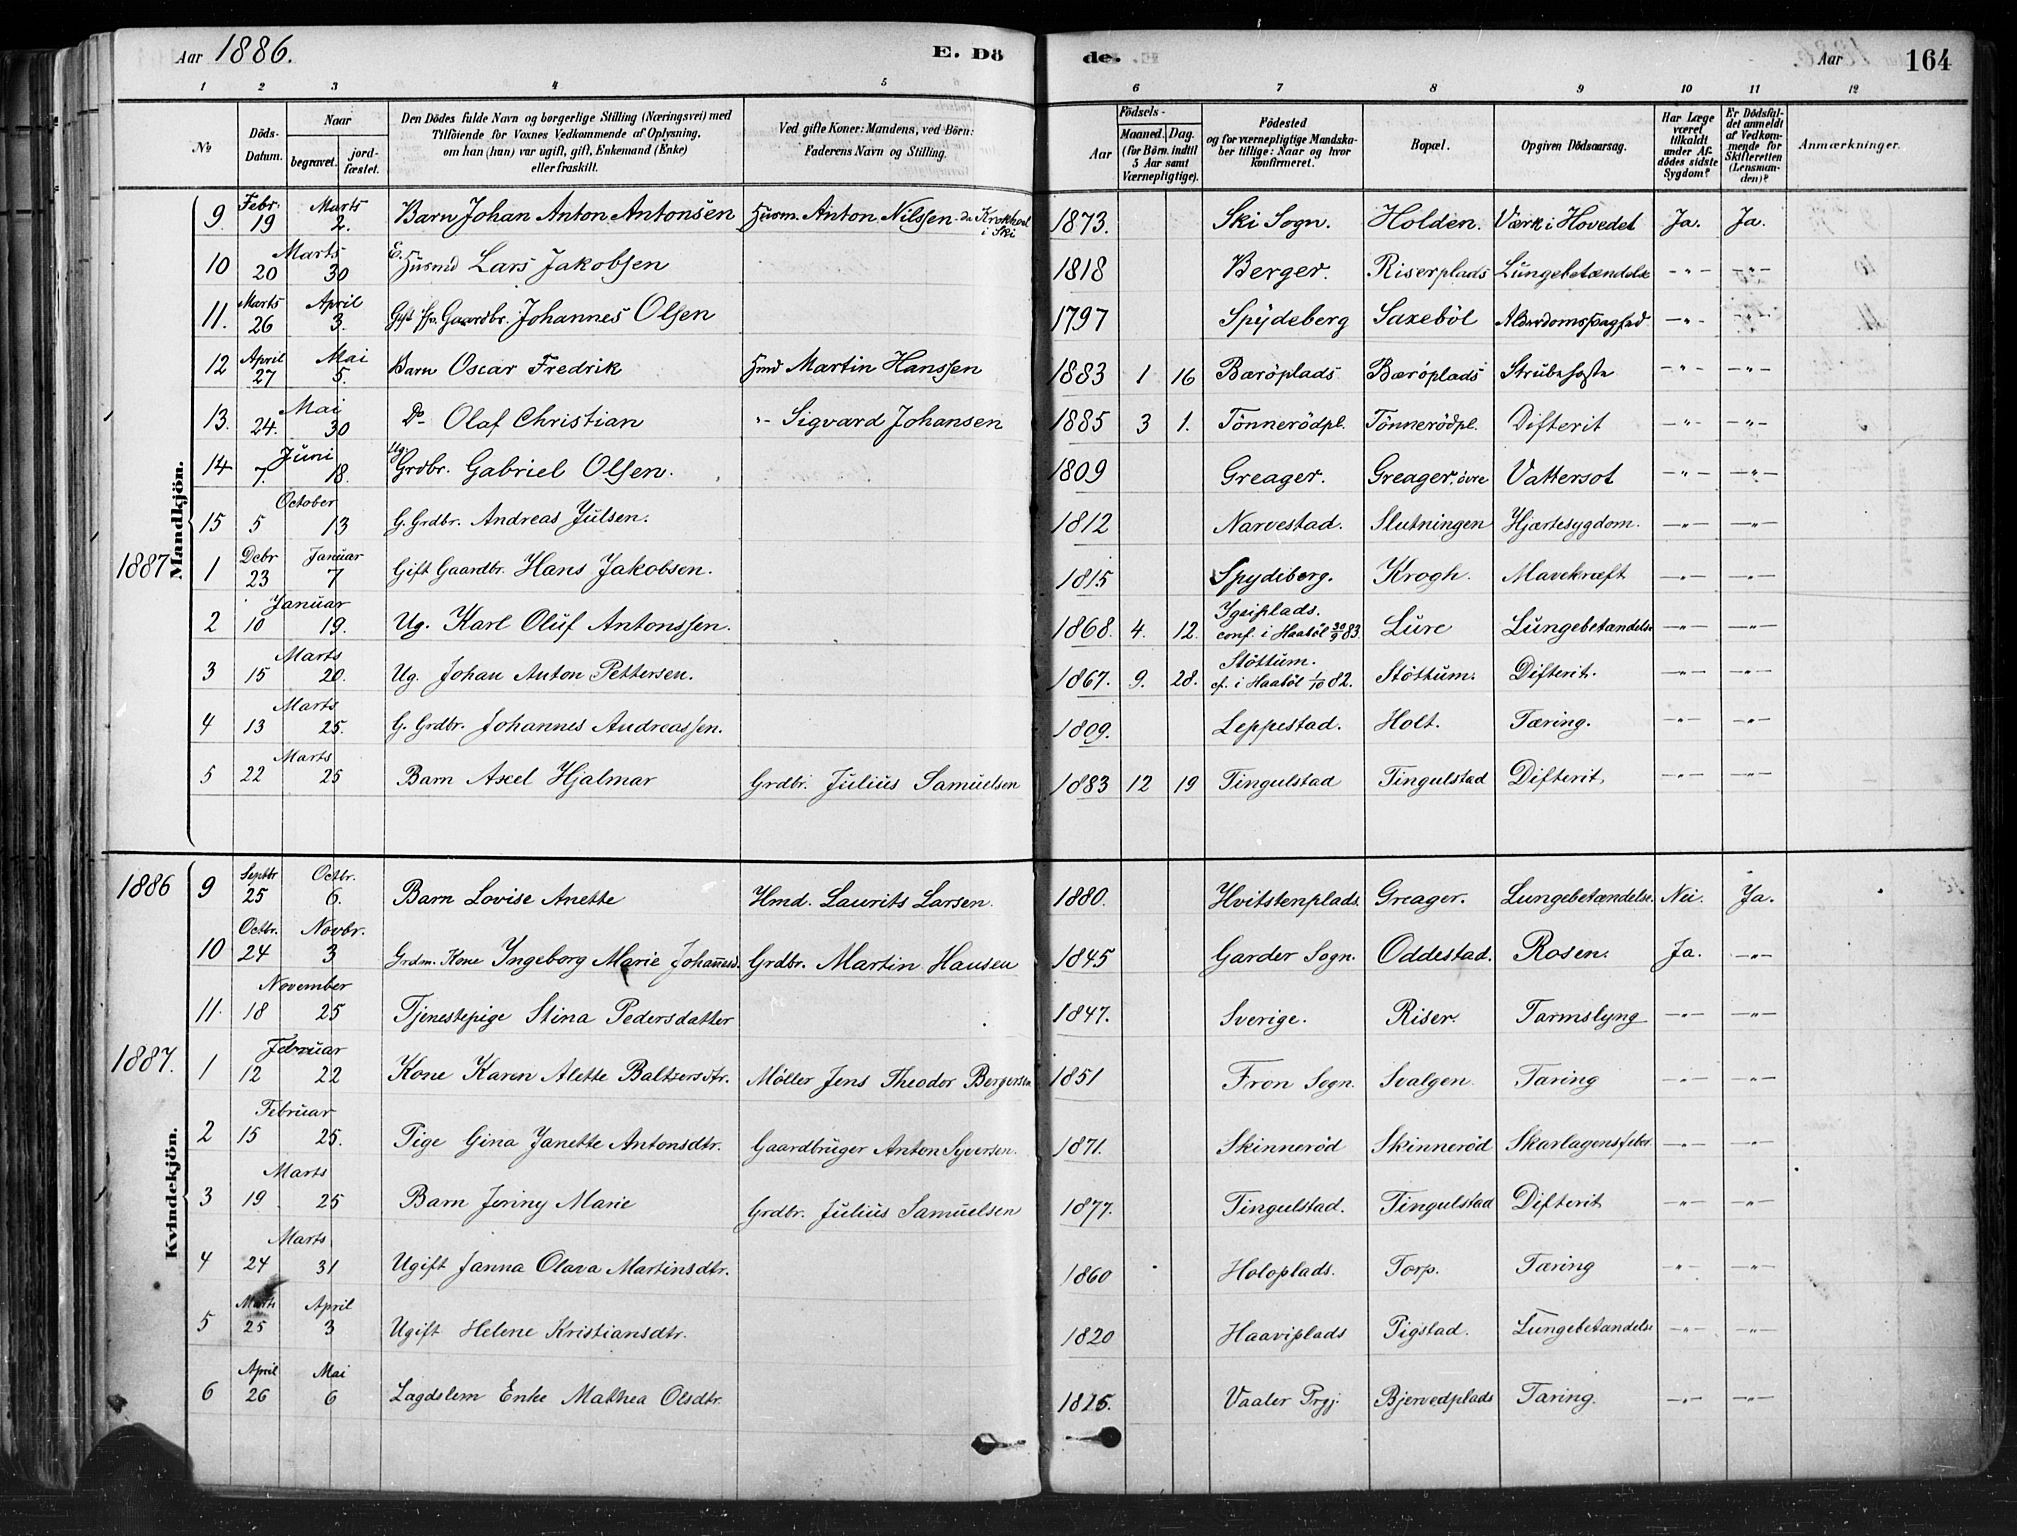 Aar 1886. E. Döde. Aar 164
1 2 3 4 5 6 7 8 9 10 11 12
No Döds-Datum. Naar begravet. jordfæstet. Den Dödes fulde Navn og borgerlige Stilling (Næringsvei) med Tilföiende for Voxnes Vedkommende af Oplysning, om han (hun) var ugift, gift, Enkemand (Enke) eller fraskilt. Ved gifte Koner: Mandens, ved Börn: Faderens Navn og Stilling. Födsels- Aar Maaned. Dag. (for Börn indtil 5 Aar samt Værnepligtige). Födested og for værnepligtige Mandskaber tillige: Naar og hvor konfirmeret. Bopæl. Opgiven Dödsaarsag. Har Læge været tilkaldt under Afdödes sidste Sygdom? Er Dödsfaldet anmeldt af Vedkommende for Skifteretten (Lensmanden)? Anmærkninger.
Mandkjön.
9 Febr. 19 Marts 2. Barn Johan Anton Antonsen Husm. Anton Nilssen i Ski 1873. Ski Sogn. Holden. Værk i Hovedet Ja. Ja.
10 Marts 20 30 E. Husmd Lars Jakobsen 1818 Berger. Riserplads Lungebetændelse -"- -"-
11. Marts 26 April 3. Gaardbr. Johannes Olsen 1797 Spydeberg Saxeböl -"- -"-
12 April 27 Mai 5. Barn Oscar Fredrik Hmd Martin Hanssen 1883 1 16 Baröplads Bæröplads Strubehoste -"- -"-
13. Mai 24. 30 Do Olaf Christian -"- Sigvard Johansen 1885 3 1. Tönnerödpl. Tönnerödpl. Difterit -"- -"-
14 Juni 7. 18. Ug. Grdbr. Gabriel Olsen. 1809 Greager. Greager, övre Vattersot -"- -"-
15 October 5 13 G. Grdbr. Andreas Julsen. 1812 Narvestad. Slutningen Hjærtesygdom. -"- -"-
1887 1 Debr 23 Januar 7 Gift Gaardbr. Hans Jakobsen. 1815 Spydiberg. Krogh. Mavekræft -"- -"-
2 Januar 10 19. Ug. Karl Oluf Antonssen. 1868. 4. 12. conf. i Haaböl 30/9 83. Lure Lungebetændelse -"- -"-
3 Marts 15 20. Ug. Johan Anton Pettersen. 1867. 9. 28. Stöttum. cf. i Haaböl 1/10 82. Stöttum. Difterit. -"- -"-
4 Marts 13 25. G. Grdbr. Johannes Andreassen. 1809. Leppestad. Holt. Tæring. -"- -"-
5 Marts 22 25 Barn Axel Hjalmar Grdbr. Julius Samuelsen 1883 12 19 Tingulstad Tingulstad Difterit. -"- -"-
Kvindekjön.
1886 9 Septbr 25 Octbr. 6. Barn Lovise Anette Hmd. Laurits Larsen. 1880. Hvitstenplads. Greager. Lungebetændelse. Nei. Ja.
10 Octbr. 24 Novbr. 3 Grdm. Kone Ingeborg Marie Johannesd. Grdbr. Martin Hansen 1845 Garder Sogn. Oddestad. Rosen. Ja. -"-
11. November 18 25 Tjenestepige Stina Pedersdatter 1847. Sverige. Riser. Tarmslyng -"- -"-
1887. 1 Februar 12 22 Kone Karen Alette Baltzersdtr. Møller Jens Theodor Bergersen 1851 Fron Sogn. Svalgen. Tæring -"- -"-
2 Februar 15 25. Pige Gina Janette Antonsdtr. Gaardbruger Anton Syversen. 1871. Skinneröd Skinneröd Skarlagensfeber -"- -"-
3 Marts 19 25 Barn Jenny Marie Grdbr. Julius Samuelsen 1877. Tingulstad. Tingulstad Difterit -"- -"-
4 Marts 24 31 Ugift Janna Olava Martinsdtr. 1860 Holoplads. Torp. Tæring -"- -"-
5 Marts 25 April 3 Ugift Helene Kristiansdtr. 1820 Haaviplads Pigstad. Lungebetændelse -"- -"-
6 April 26 Mai 6 Lagdslem Enke Mathea Olsdtr. 1825. Vaaler Prgj. Bjervedplads Tæring. -"- -"-